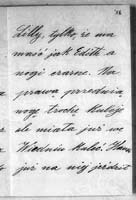 Lilly, tylko, że ma
maść jak Edith a
nogi czarne. Na
prawą przednią
nogę trochę kuleje
ale miała już we
Wiedniu
już na niej jeździł